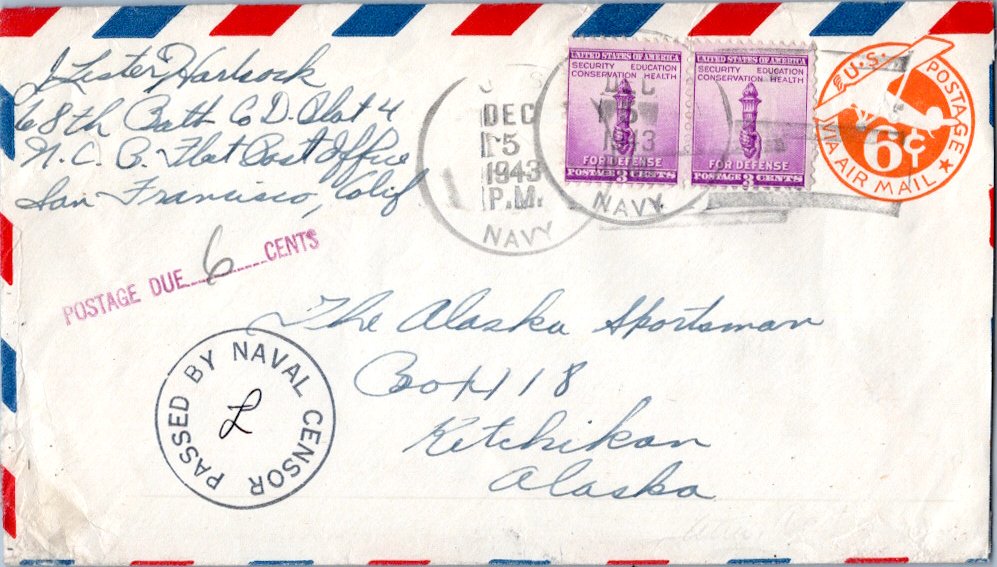 J Lester Harlsock
68th Batt Co D. Plat 4
N. C. B. Flat Post Office
San Francisco, Calif
POSTAGE DUE 6 CENTS
PASSED BY NAVAL CENSOR
L
DEC
5
1943
P.M.
NAVY
DEC
5
1943
NAVY
UNITED STATES OF AMERICA
SECURITY EDUCATION
CONSERVATION HEALTH
FOR DEFENSE
POSTAGE 3 CENTS
UNITED STATES OF AMERICA
SECURITY EDUCATION
CONSERVATION HEALTH
FOR DEFENSE
POSTAGE 3 CENTS
U.S. POSTAGE
6¢
VIA AIR MAIL
The Alaska Sportsman
Box 118
Ketchikan
Alaska